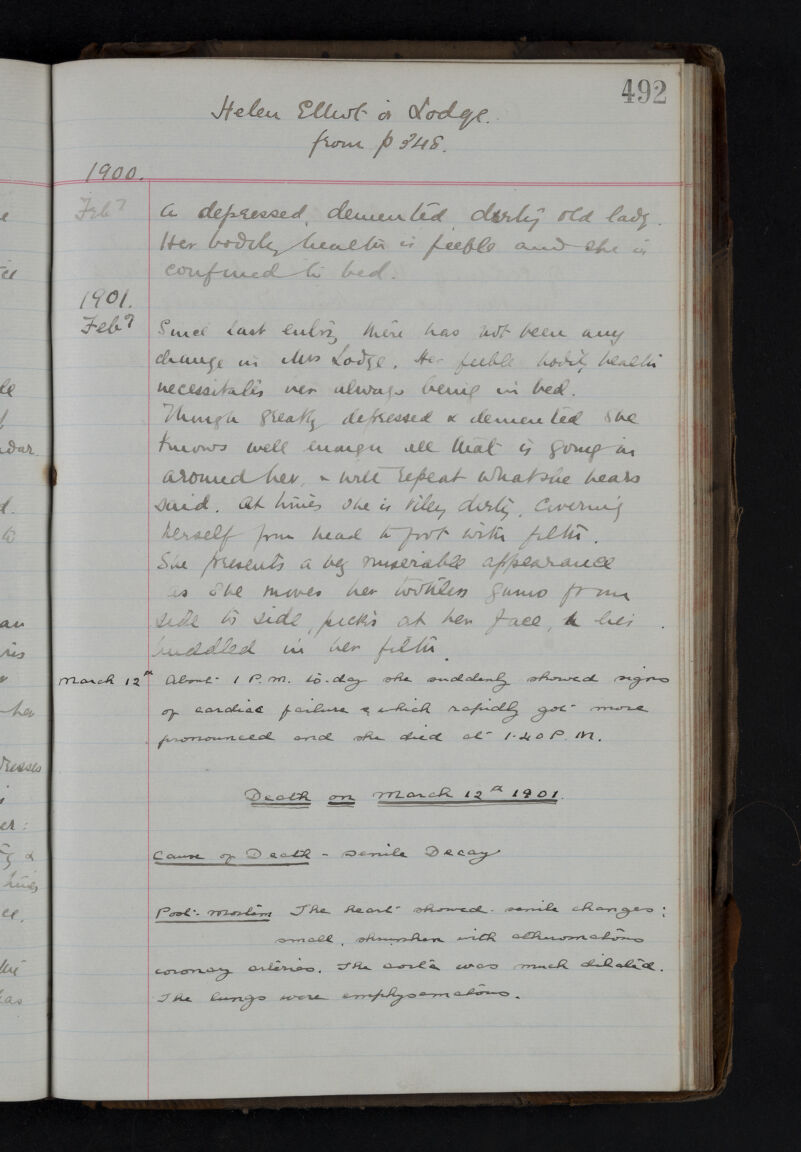 492
Helen Elliot or Lodge.
from p 348.
1900.
Feby A depressed, demented dirty old lady.
Her bodily health is feeble and she is
confined to bed.
1901.
Feby Since last entry there has not been any
change in Mrs Lodge. Her feeble bodily health
necessitates her always being in bed.
Though greatly depressed & demented she
knows well enough all that is going on
around her, & will repeat what she hears
said. At times she is viley dirty, covering
herself from head to foot with filth.
She presents a very miserable appearance
as she moves her toothless gums from
side to side, picks at her face, & lies
huddled in her filth.
March 12th About 1 P.M. to-day she suddenly showed signs
of cardiac failure & which rapidly got more
pronounced and she died at 1.40 P.M.
Death on March 12th 1901.
Cause of Death - Senile Decay
Post-mortem The heart showed senile changes;
small, shrunken with atheromatous
coronary arteries. The aorta was much dilated.
The lungs were emphysematous.